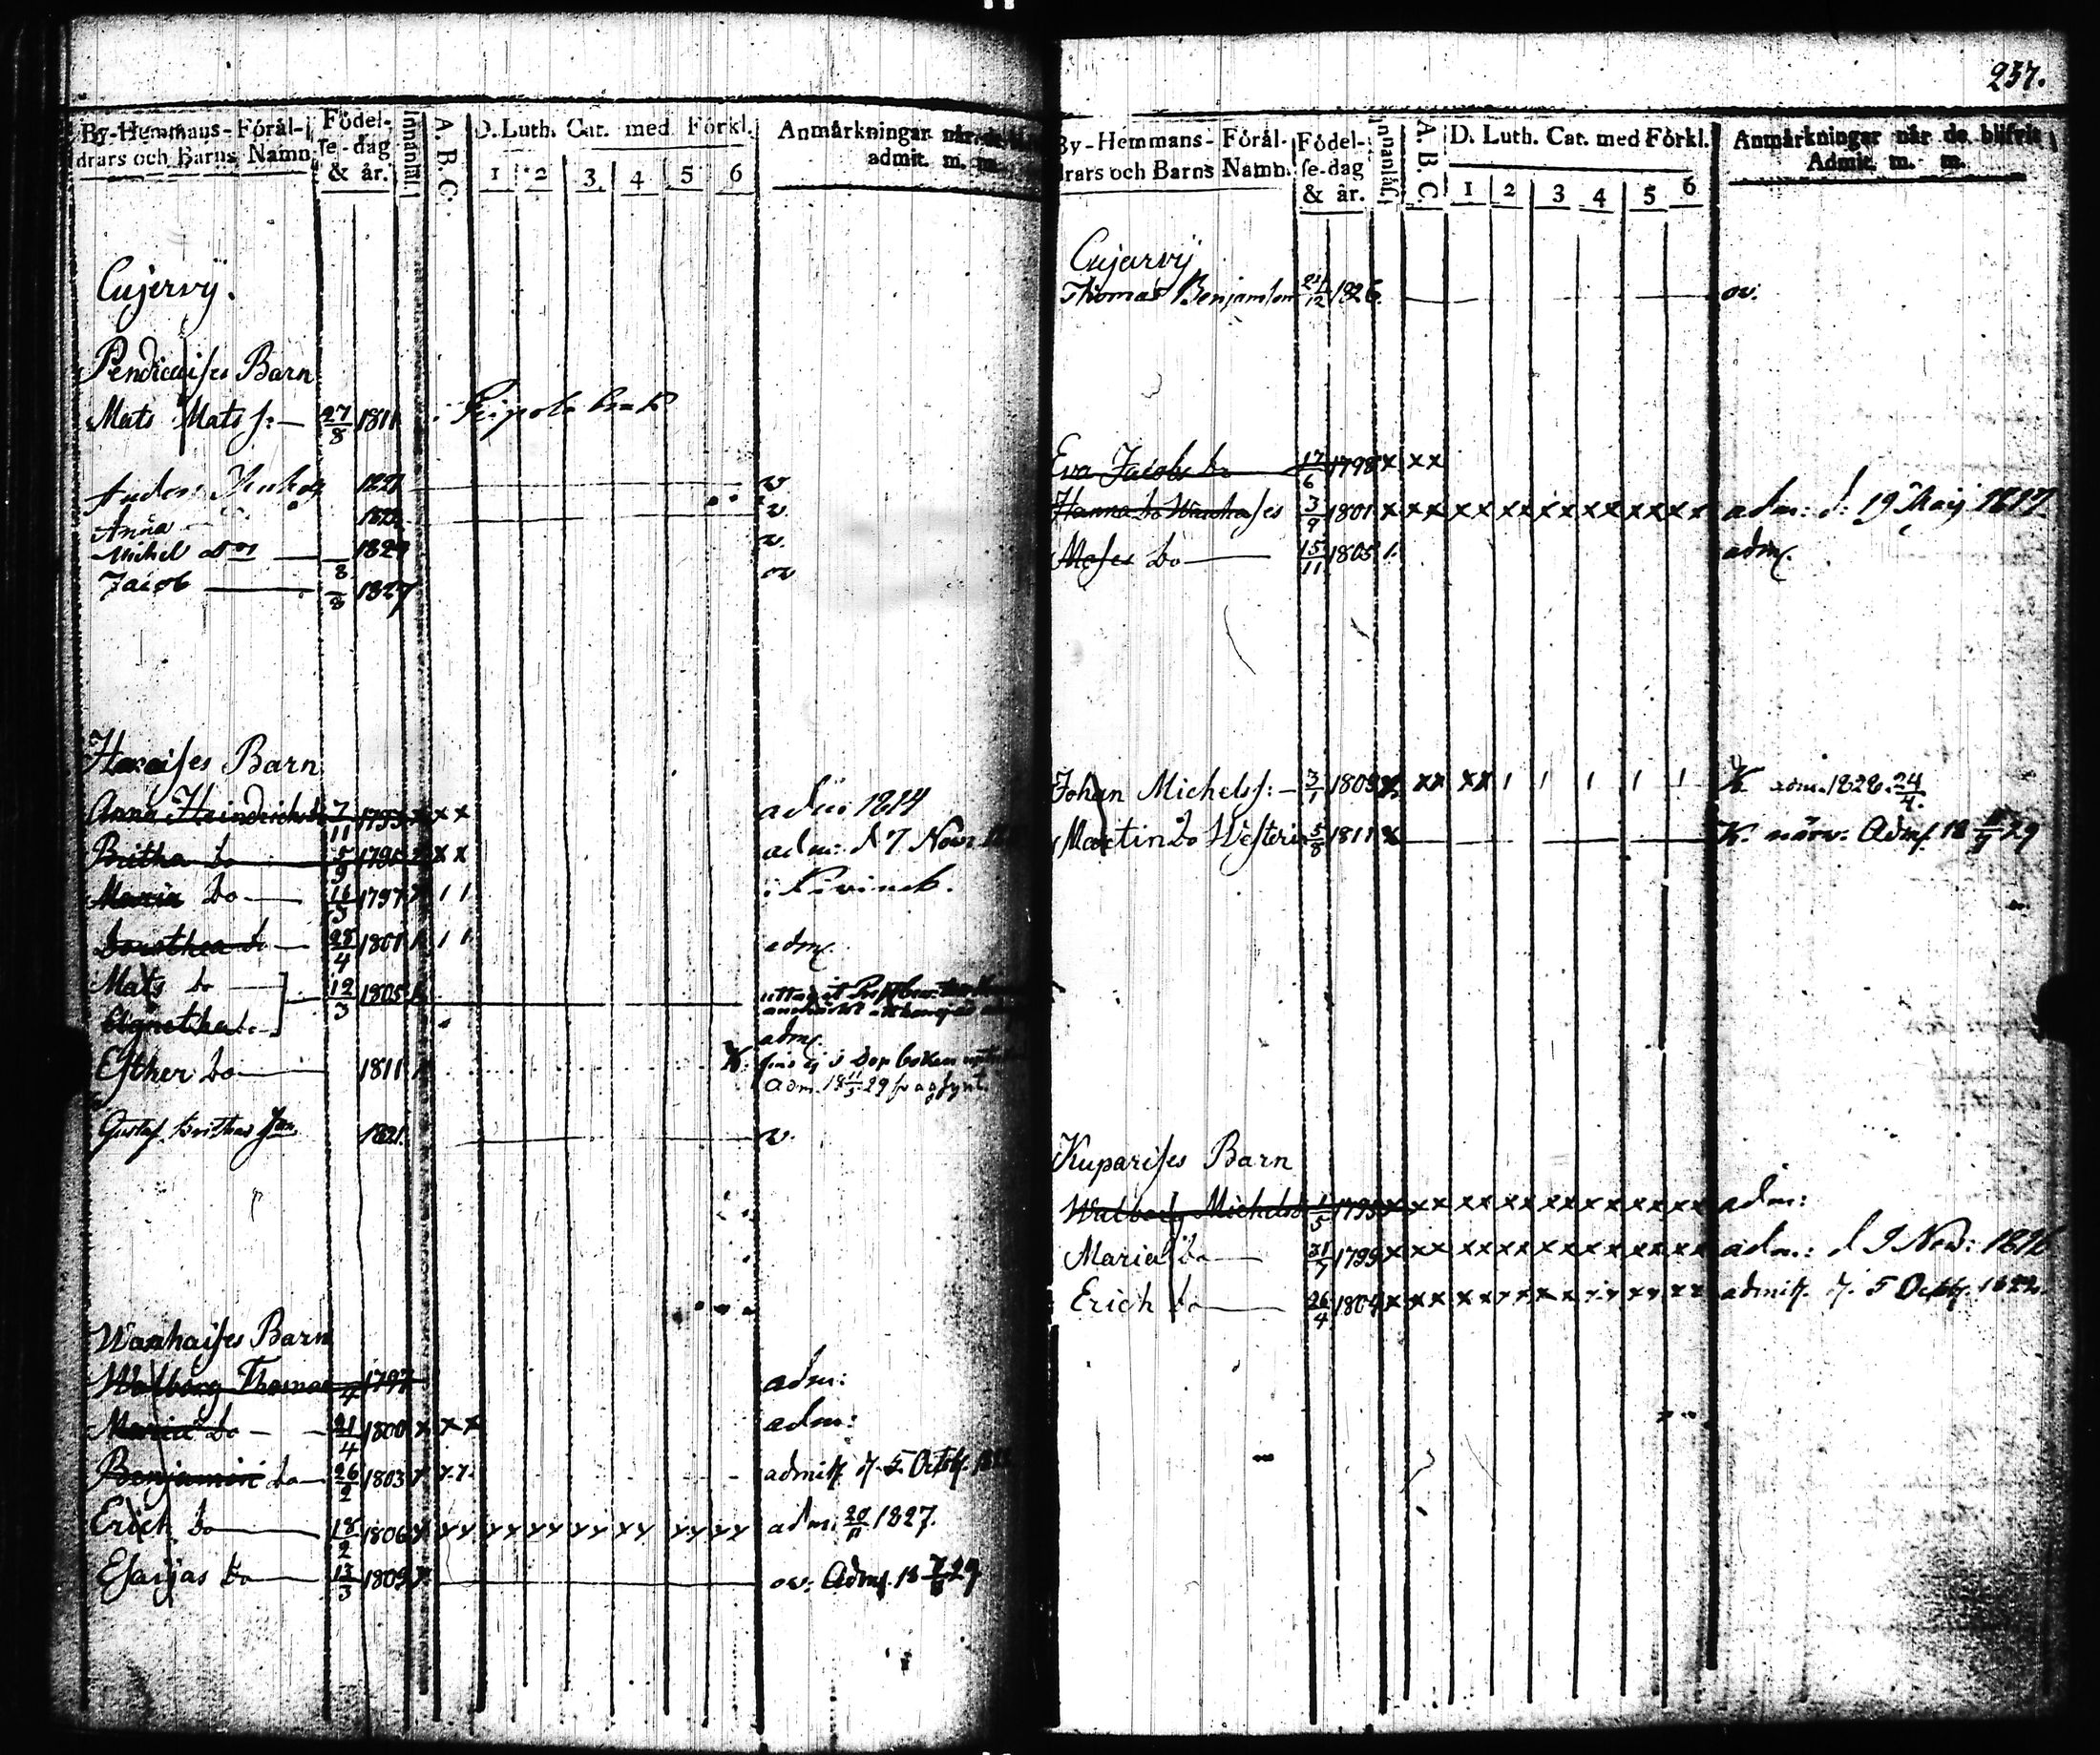 By-Hemmans-Förål-
drars och Barns Namn.
Födel-
se-dag
& år.
Innanläsl.
A. B. C.
D. Luth. Cat. med Förkl.
1 2 3 4 5 6
Anmärkningar når de
admit. m. m.
Cujervÿ.
Barn
Mats Mats s: 27/8 1811
Anders 1821 v
Anna v
Michel do 1829 v.
Jacob /8 1827 ov
Haraises Barn
Anna Heindrichsd 7/11 1793 x x x adm: 1814
Britha do 5/9 179 x x x adm: d 7 Nov:
Maria do 16/3 1797 x 1 1
Dorothea do 28/4 1801 x 1 1 adm.
Mats do 12/3 1805 x
Agnetha do adm.
Esther do 1811 K. fins ej i Dop boken
Adm. 18 11/5 29
Gustaf Brithas Son 1821 v.
Wanhaises Barn
Walborg Thomas 1797 adm:
Maria do 21/4 1800 x x x adm:
Benjamin do 26/2 1803 admitt. d. 5 Octob.
Erich do 18/2 1806 x xx xx xx xx xx xx xx adm: 20/11 1827.
Esaijas do 13/3 1809 x ov: Adm. 18 29
237.
By-Hemmans-Förål-
drars och Barns Namn.
Födel-
se-dag
& år.
Innanläsl.
A. B. C.
D. Luth. Cat. med Förkl.
1 2 3 4 5 6
Anmärkningar når de blifvit
Admit. m. m.
Cujarvÿ
Thomas Benjamins 21/12 1826 ov.
Eva Jacobs do 17/6 1798 x xx
Hanna do 3/9 1801 x xx xx xx xx xx xx xx adm: d: 19 Maij 1817
Moses do 15/11 1805 1. adm.
Johan Michels s: 3/1 1809 x. xx xx 1 1 1 1 1 K adm. 1828. 24/4.
Martin do 5/8 1811 x K. närv. Adm. 18 29
Kuparises Barn
Walborg Michelsd 1/5 1795 x xx xx xx xx xx xx xx adm:
Maria do 31/7 1799 x xx xx xx xx xx xx xx adm: d 9 Nov:
Erich do 26/4 1804 x xx xx xx xx xx xx xx admitt. d. 5 Octob. 1822.